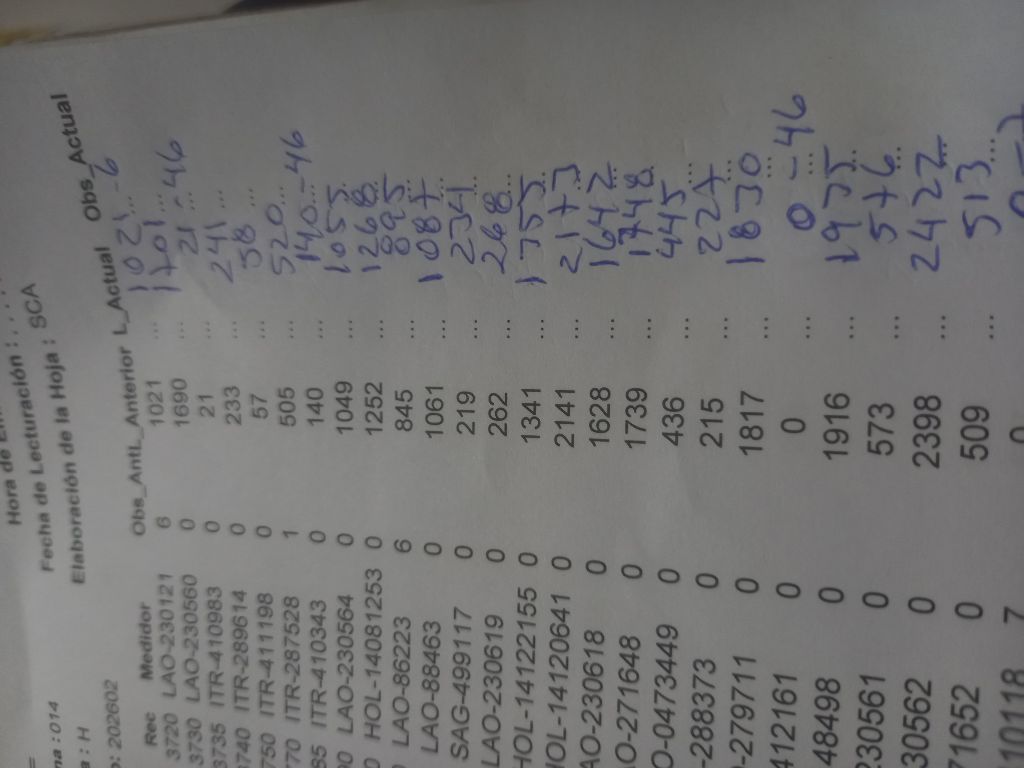 Hora de
Fecha de Lecturación : . . . .
Elaboración de la Hoja : SCA
na : 014
a : H
o: 202602
Rec Medidor Obs_Ant L_Anterior L_Actual Obs_Actual
3720 LAO-230121 6 1021 ... 1021 -6
3730 LAO-230560 0 1690 ... 1701
3735 ITR-410983 0 21 ... 21 -46
3740 ITR-289614 0 233 ... 241
3750 ITR-411198 0 57 ... 58
770 ITR-287528 1 505 ... 520
85 ITR-410343 0 140 ... 140 -46
0 LAO-230564 0 1049 ... 1055
0 HOL-14081253 0 1252 ... 1268
LAO-86223 6 845 ... 895
LAO-88463 0 1061 ... 1087
SAG-499117 0 219 ... 234
LAO-230619 0 262 ... 268
HOL-14122155 0 1341 ... 1355
HOL-14120641 0 2141 ... 2173
AO-230618 0 1628 ... 1642
O-271648 0 1739 ... 1748
O-0473449 0 436 ... 445
-288373 0 215 ... 227
-279711 0 1817 ... 1830
412161 0 0 ... 0 -46
48498 0 1916 ... 1935
230561 0 573 ... 576
30562 0 2398 ... 2422
71652 0 509 ... 513
10118 7 0